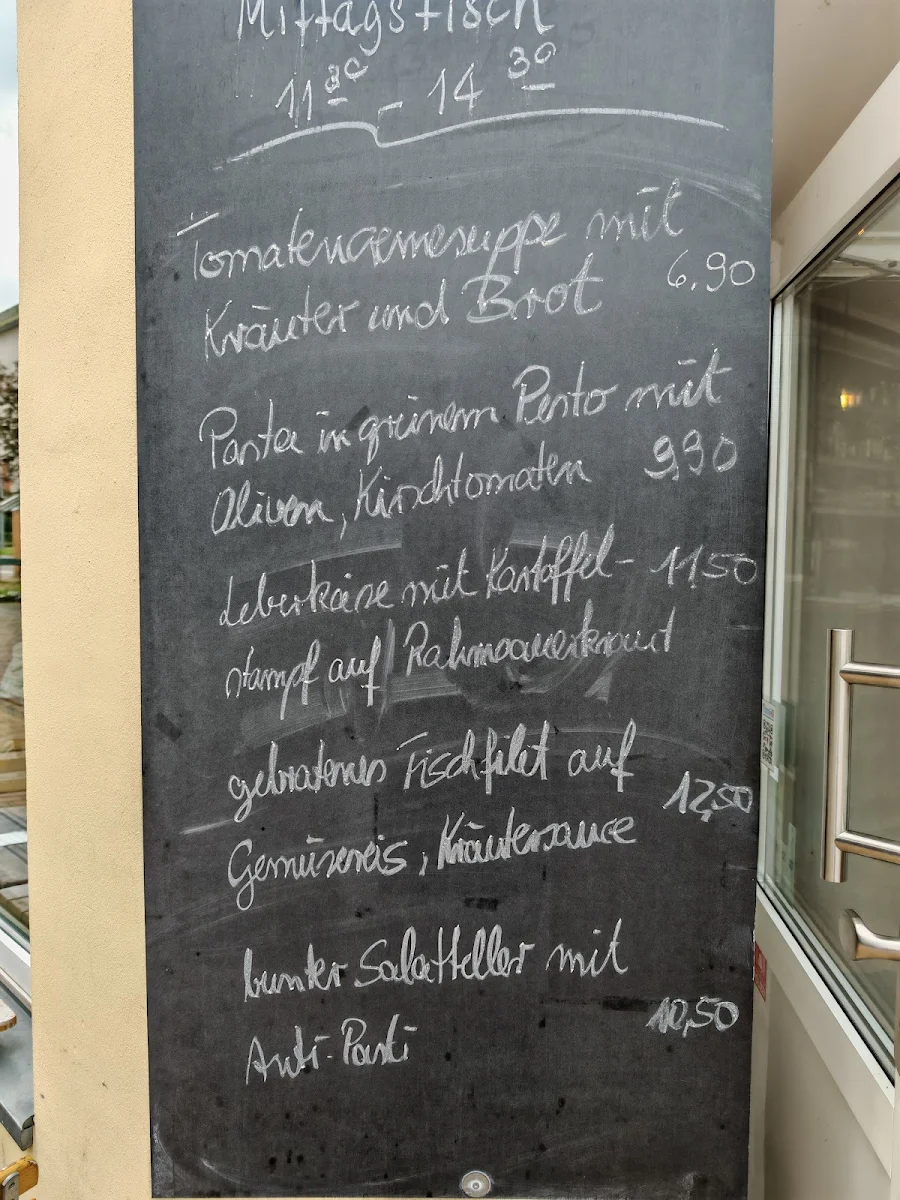 Mittagstisch
11 30 - 14 30
Tomatencremesuppe mit
Kräuter und Brot 6,90
Pasta in grünem Pesto mit
Oliven, Kirschtomaten 9,90
Leberkäse mit Kartoffel- 11,50
stampf auf Rahmsauerkraut
gebratenes Fischfilet auf
Gemüsereis, Kräutersauce 12,50
bunter Salatteller mit
Anti-Pasti 10,50